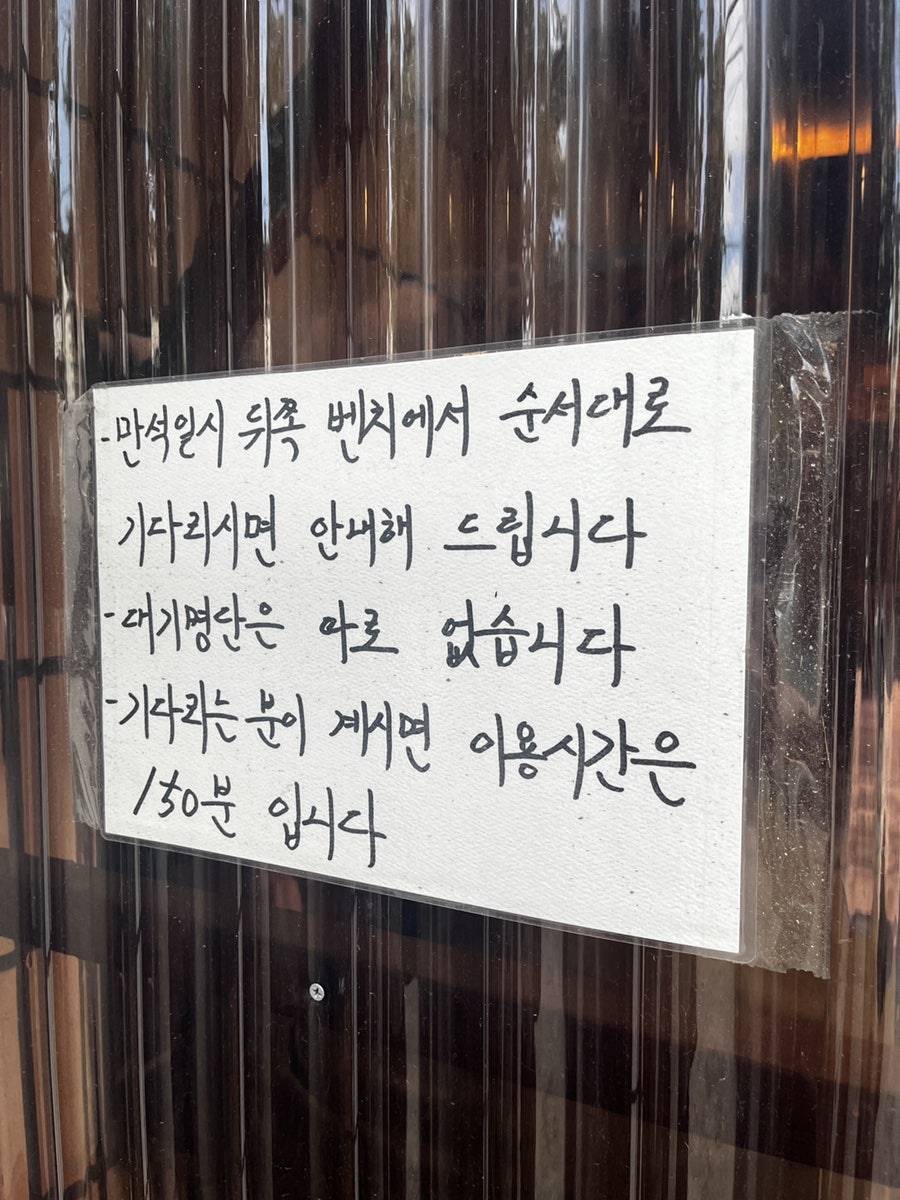 -만석일시 뒤쪽 벤치에서 순서대로
기다리시면 안내해 드립니다
-대기명단은 따로 없습니다
-기다리는분이 계시면 이용시간은
150분 입니다